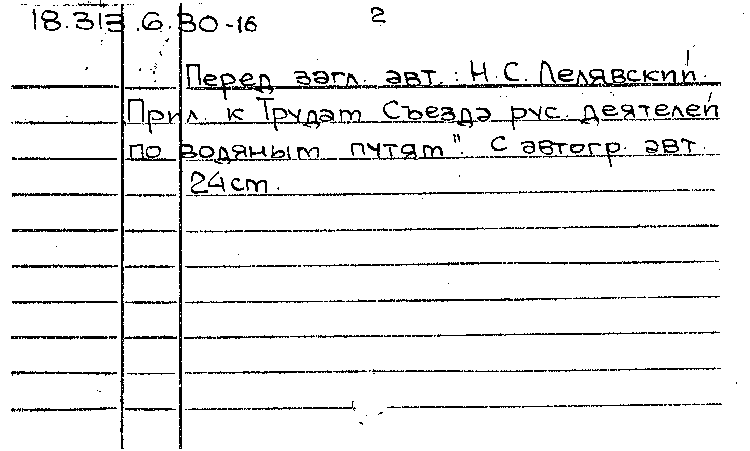 18.313.6.30-16 2
Перед загл. авт.: Н.С. Лелявский.
Прил. к Трудам Съезда рус. деятелей
по водяным путям". С автогр. авт.
24 cm.